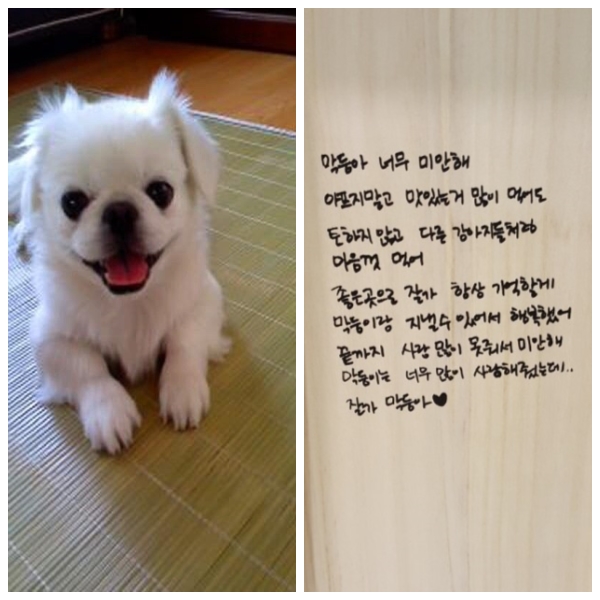 막둥아 너무 미안해
아프지말고 맛있는거 많이 먹어도
토하지 않고 다른 강아지들처럼
마음껏 먹어
좋은곳으로 잘가 항상 기억할게
막둥이랑 지낼수 있어서 행복했어
끝까지 사랑 많이 못줘서 미안해
막둥이는 너무 많이 사랑해줬는데..
잘가 막둥아♥